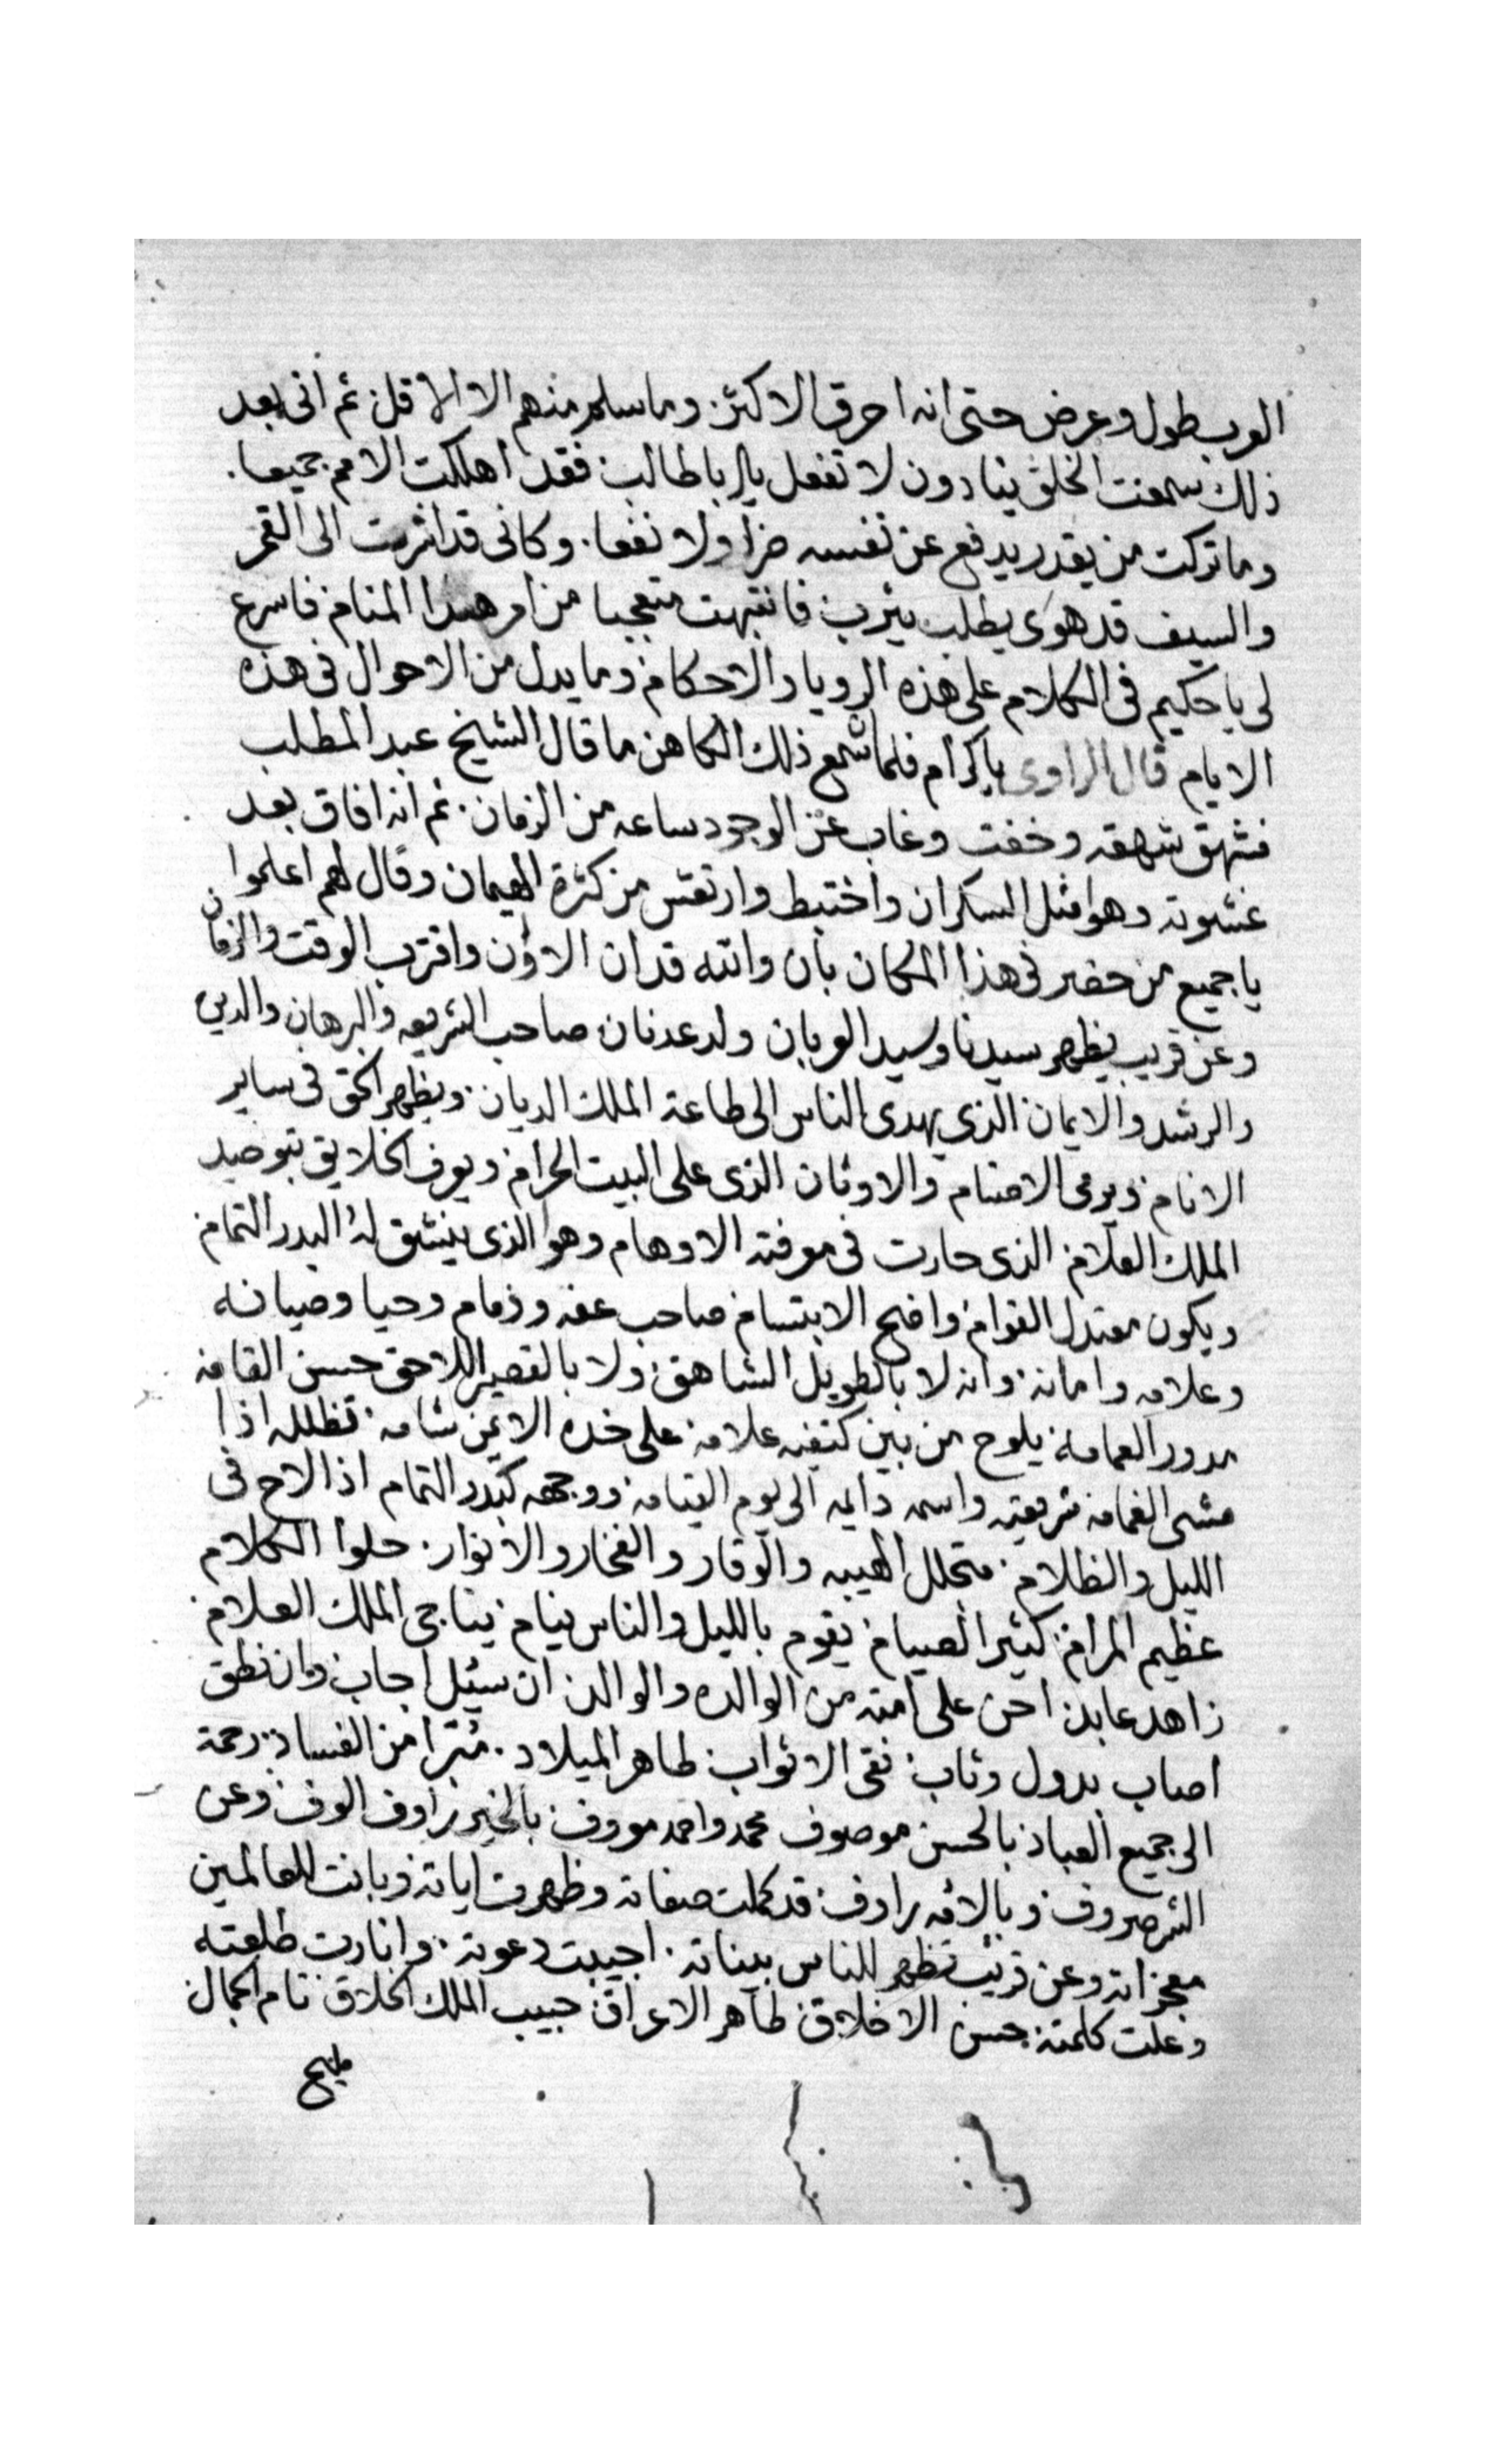 العرب طول وعرض حتى انه احرق الاكثر وما سلم منهم الا الاقل ثم انى بعد
ذلك سمعت الخلق ينادون لا تفعل يا ابا طالب فقد اهلكت الامم جميعا.
وما تركت من يقدر يدفع عن نفسه ضرا ولا نفعا. وكانى قد اشرت الى القمر
والسيف قد هوى يطلب يثرب فانتبهت متعجبا من امر هذا المنام فاسرع
لى يا حكيم فى الكلام على هذه الرويا والاحكام وما يدل من الاحوال فى هذه
الايام قال الراوى يا كرام فلما سمع ذلك الكاهن ما قال الشيخ عبد المطلب
فشهق شهقه وخفت وغاب عن الوجود ساعه من الزمان. ثم انه افاق بعد
غشوته وهوا مثل السكران واختبط وارتعش من كثرة الهيمان وقال لهم اعلموا
يا جميع من حضر فى هذا المكان بان وانته قد ان الاوان واقترب الوقت والزمان
وعن قريب يظهر سيدنا وسيد العربان ولد عدنان صاحب الشريعه والبرهان والدين
والرشد والايمان الذي يهدى الناس الى طاعة الملك الديان ويظهر الحق فى ساير
الانام ويرمى الاصنام والاوثان الذى على البيت الحرام ويعرف الخلايق بتوحيد
الملك العلام الذى حارت فى معرفته الاوهام وهو الذى ينشق له البدر التمام
ويكون معتدل القوام واضح الابتسام صاحب عفه وزمام وحيا وصيانه
وعلامه وامانه وانه لا بالطويل الشاهق ولا بالقصير اللاحق حسن القامه
مدور العمامة يلوح من بين كتفيه علامه على خده الايمن شامه. تظلله اذا
مشى الغمامه شريعته واسمه دايمه الى يوم القيامه ووجهه كبدر التمام اذا لاح فى
الليل والظلام. متجلل الهيبه والوقار والفخار والانوار. حلوا الكلام
عظيم المرام كثير الصيام يقوم بالليل والناس نيام يناجى الملك العلام
زاهد عابد احن على امته من الوالده والوالد ان سئل اجاب وان نطق
اصاب بدول وثاب نقى الاثواب طاهر الميلاد. متبرا من الفساد. رحمة
الى جميع العباد بالحسن موصوف محمد واحمد معروف بالخير راوف الوف وعن
الشر صروف وبالامه راوف قد كملت صفاته وظهرت اياته وبانت للعالمين
معجزاته وعن قريب تظهر للناس بيناته. اجيبت دعوته. وانارت طلعته
وعلت كلمته حسن الاخلاق طاهر الاعراق حبيب الملك الخلاق تام الجمال
مليح